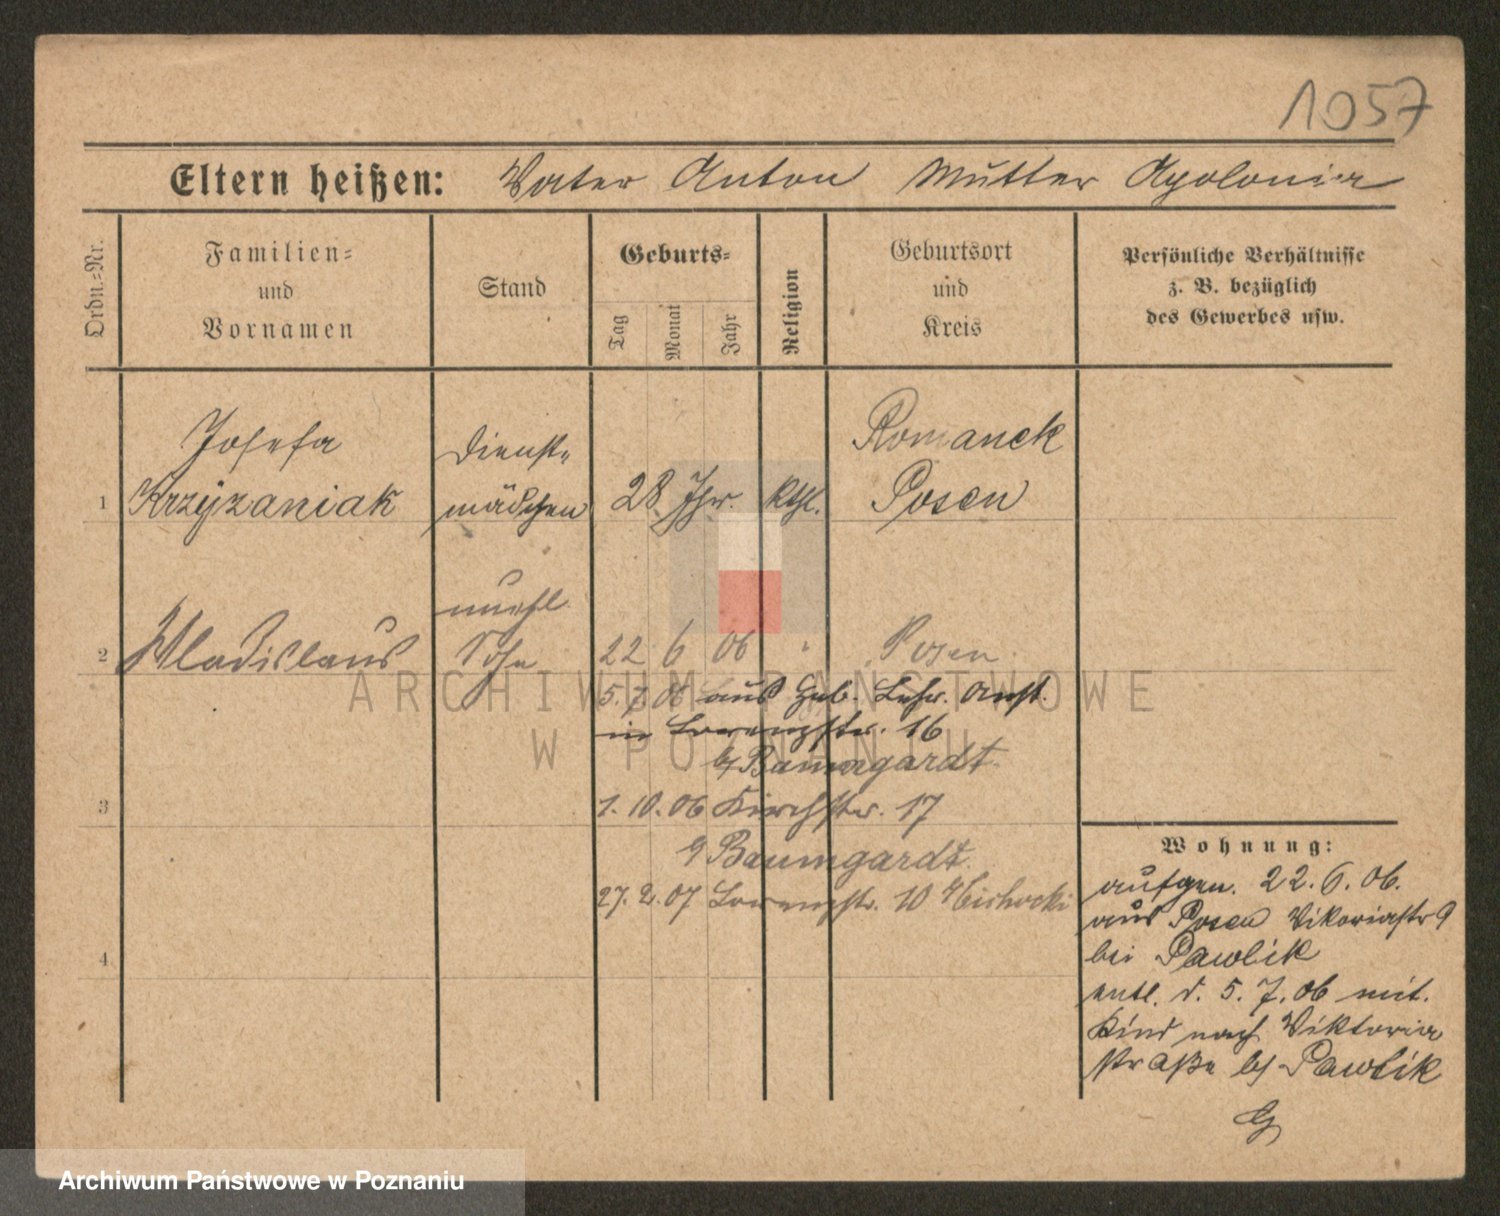 1057
Eltern heißen: Vater Anton Mutter Apolonia
Ordn.-Nr.
Familien-
und
Vornamen
Stand
Geburts-
Tag
Monat
Jahr
Religion
Geburtsort
und
Kreis
Persönliche Verhältnisse
z. B. bezüglich
des Gewerbes usw.
Josefa
1 Krzyzaniak
Dienst-
mädchen
28 Jhr.
kthl.
Romanek
Posen
2 Wladislaus
unehl.
Sohn
22 6 06 " Posen
5. 7. 06 aus Geb. Lehr. Anst.
in Lorenzstr. 16
b/ Baumgardt
3
1. 10. 06 Kirchstr. 17
Baumgardt.
27. 2. 07 Lorenzstr. 10
4
Wohnung:
aufgen. 22. 6. 06.
aus Posen Vikoriastr 9
bei Pawlik
entl. d. 5. 7. 06 mit.
Kind nach Viktoria
straße b/ Pawlik
ARCHIWUM PAŃSTWOWE
W POZNANIU
Archiwum Państwowe w Poznaniu